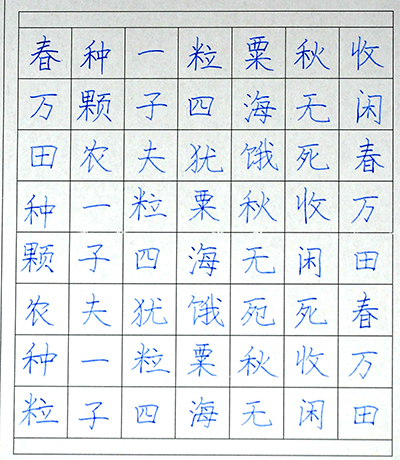 春种一粒粟秋收
万颗子四海无闲
田农夫犹饿死春
种一粒粟秋收万
颗子四海无闲田
农夫犹饿宛死春
种一粒粟秋收万
粒子四海无闲田